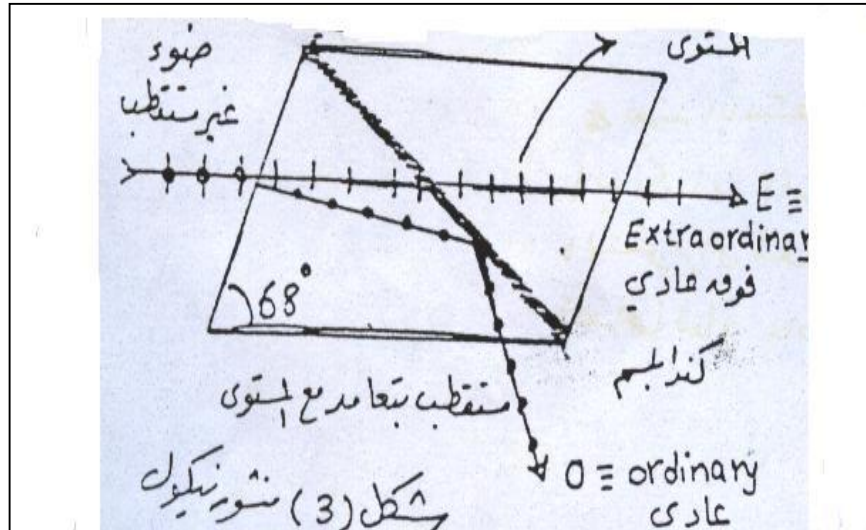 ضوء
غير متقطب
المستوى
E ≡
Extraordinar
فوق عادي
68°
كندا بلسم
متقطب بتعامد مع المستوى
O ≡ ordinary
عادي
شكل (3) منشور نيكول